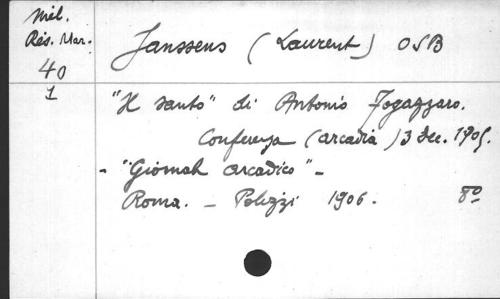 Mél.
Rés. Mar.
40
1
Janssens (Laurent) OSB
"Il santo" di Antonio Fogazzaro.
Conferenza (Arcadia) 3 dec. 1905.
- "Giornale arcadico" -
Roma. - Polizzi 1906. 8º